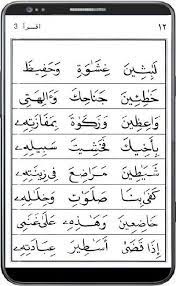 ١٢ اقرأ 3
لَبِثِينَ غِشَٰوَةٌ وَحَفِيظٌ
خَٰطِـِٔينَ جَنَاحَكَ وَءَالِهَتِي
وَٰعِظِينَ وَزَكَوٰةً بِمَفَازَتِهِۦ
بِأَخِيكَ فَخَشِيتَ سَبِيلِهِۦ
شَيَٰطِينَ مَرَاضِعَ فِي زِينَتِهِۦ
كَفَىٰ بِنَا صَلَوَٰتٌ وَخِلَٰلِهِۦ
خَاضِعِينَ وَهَٰذِهِۦ عَلَىٰ غَنَمِي
إِذَا قَضَىٰ أَسَٰطِيرَ عِبَادَتِهِۦ